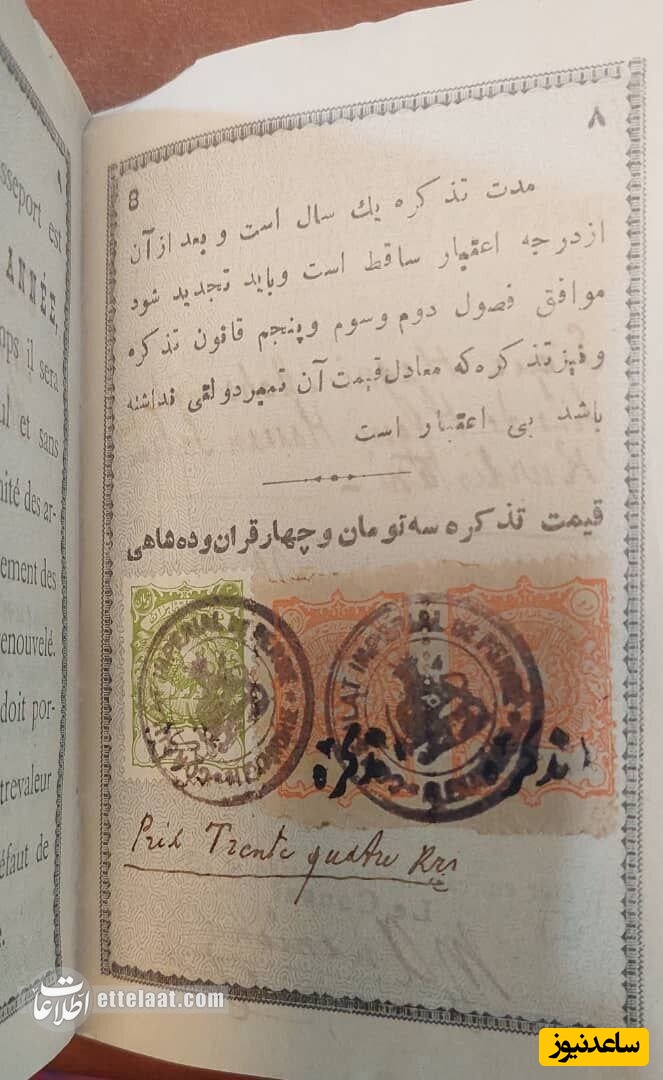 sseport est
ANNÉE,
mps il sera
ul et sans
mité des ar-
ement des
renouvelé.
doit por-
trevaleur
éfaut de
8
٨
مدت تذكره يك سال است و بعد از آن
از درجه اعتبار ساقط است و بايد تجديد شود
موافق فصول دوم و سوم و پنجم قانون تذكره
و نيز تذكره كه معادل قيمت آن تمبر دولتی نداشته
باشد بی اعتبار است
قيمت تذكره سه تومان و چهار قران و ده شاهی
IMPERIAL DE PERSE
LAT IMPERIAL DE PERSE
تذكره
تذكره
Prix Trente quatre Krs
اطلاعات ettelaat.com
ساعدنیوز